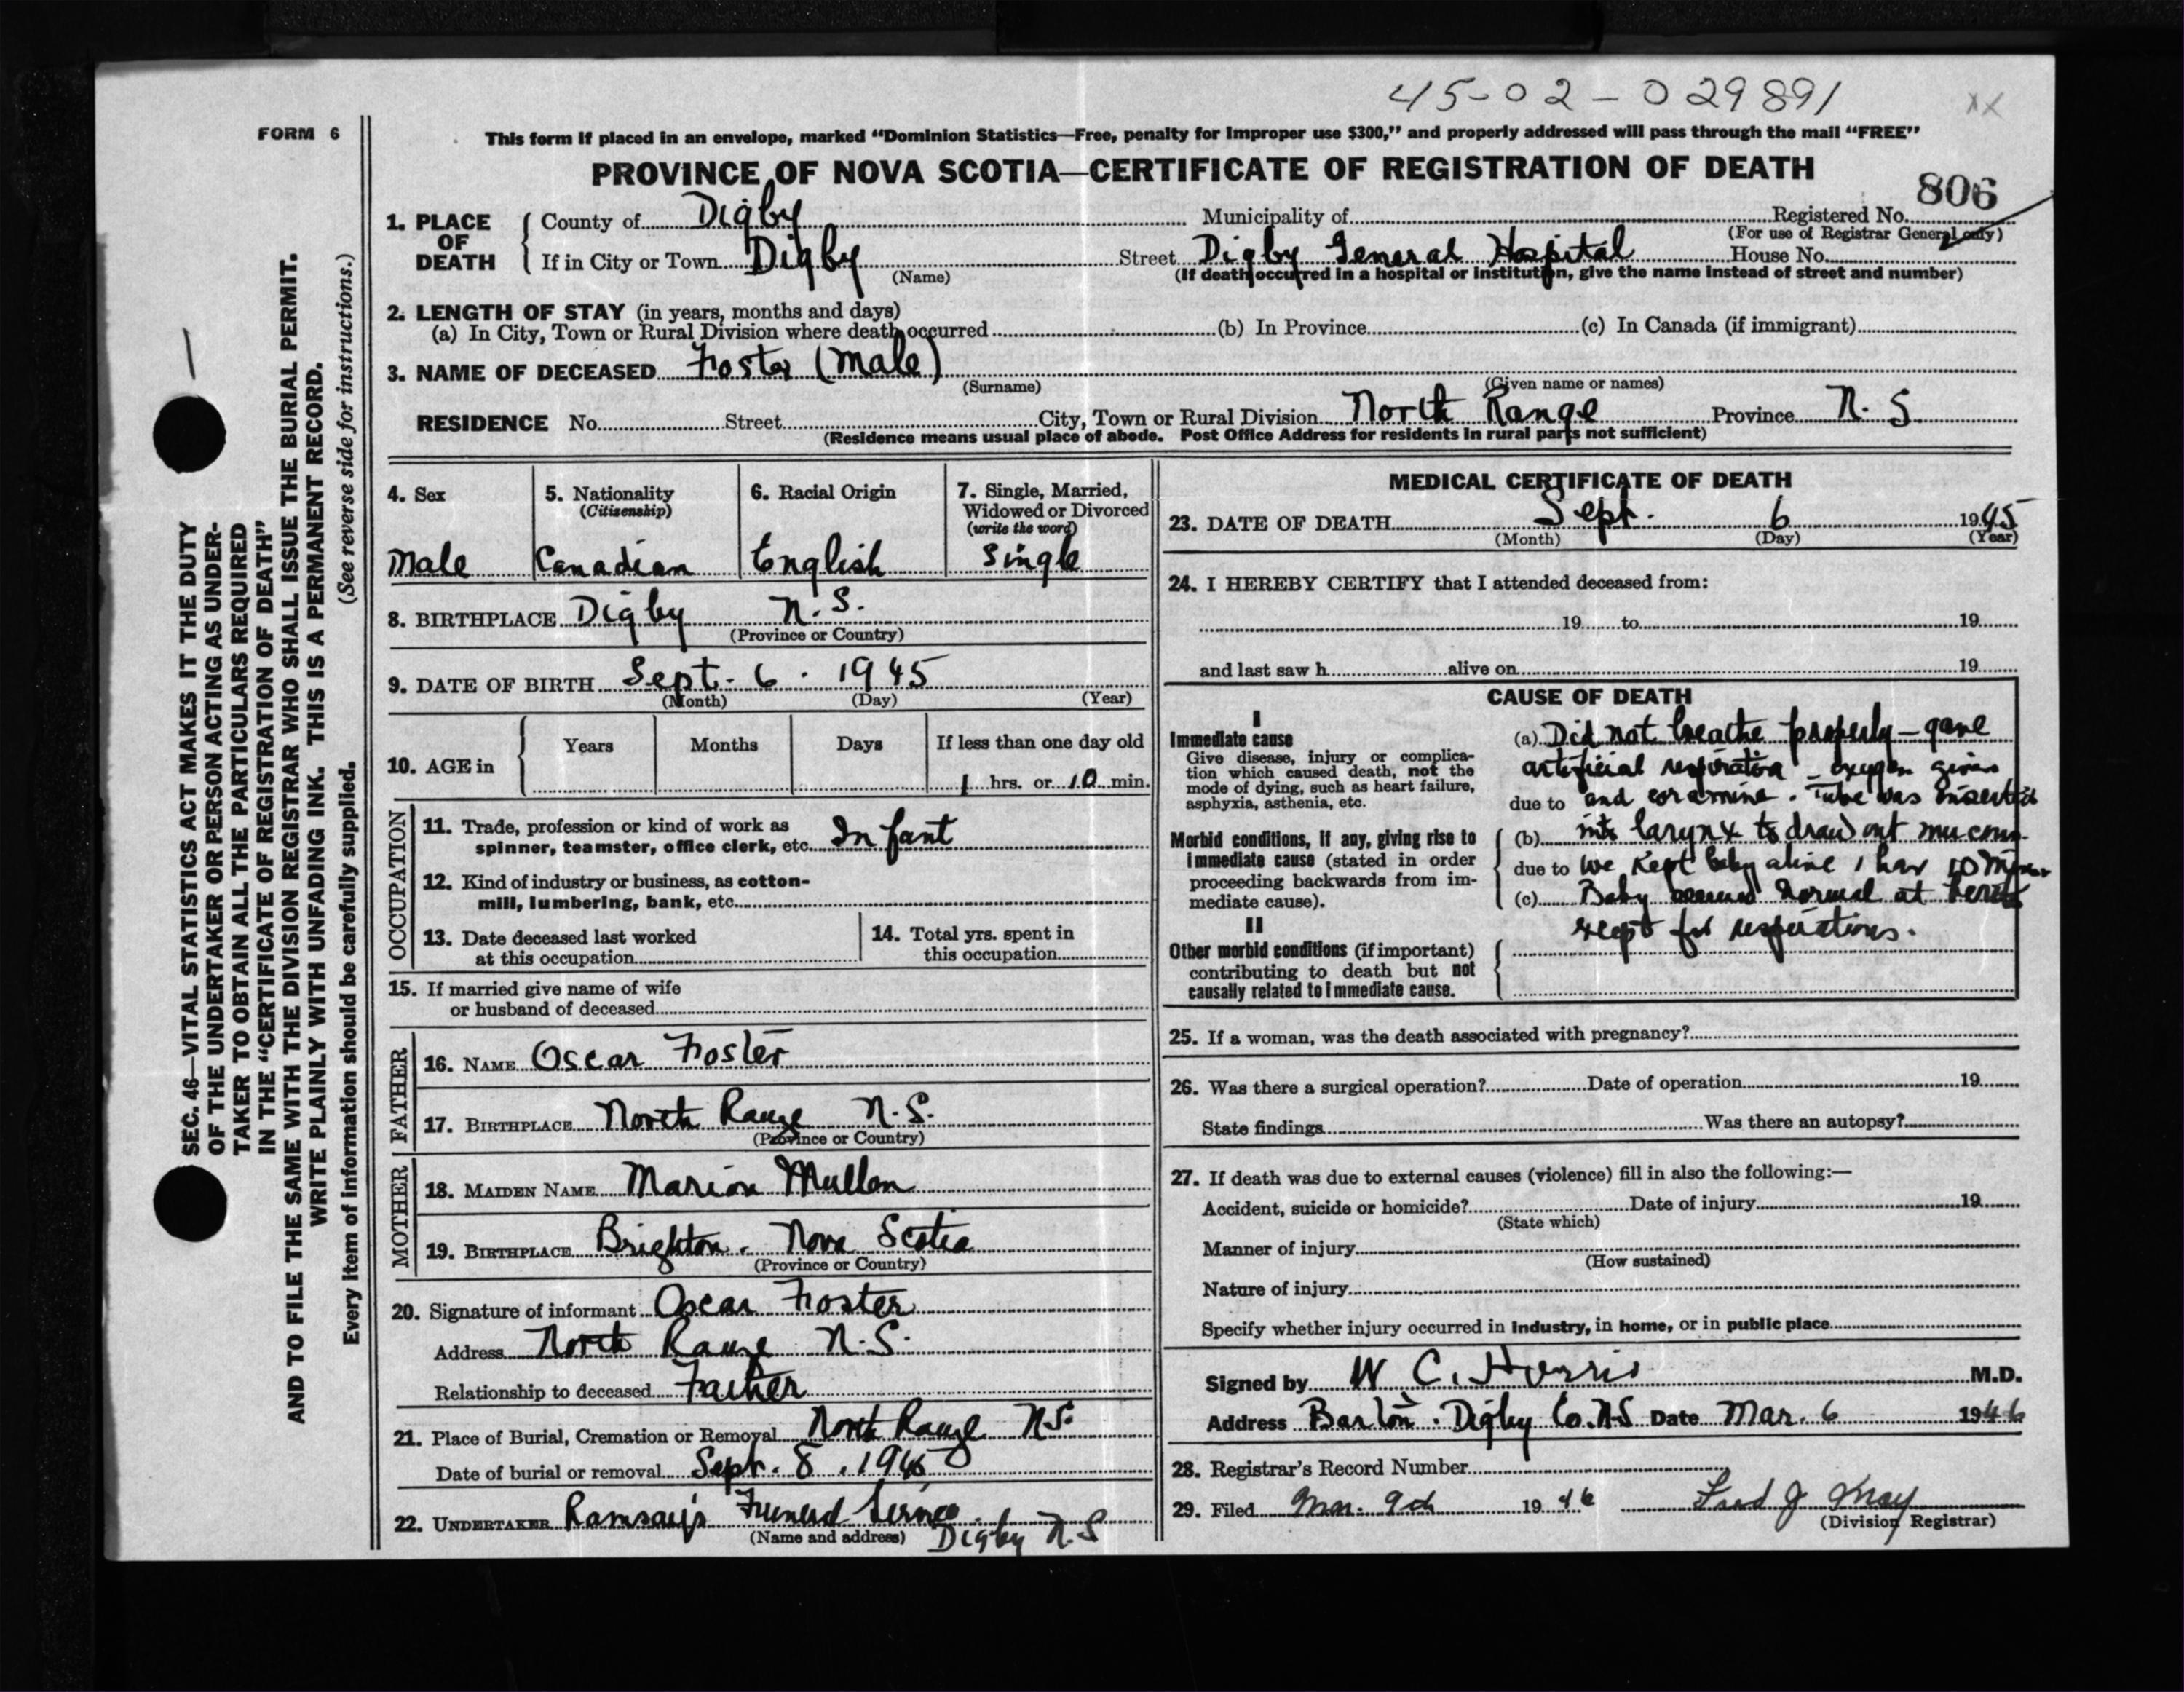 45-02-029891
XX
FORM 6
This form if placed in an envelope, marked “Dominion Statistics—Free, penalty for improper use $300,” and properly addressed will pass through the mail “FREE”
PROVINCE OF NOVA SCOTIA—CERTIFICATE OF REGISTRATION OF DEATH
806
1. PLACE OF DEATH
County of Digby Municipality of Registered No.
(For use of Registrar General only)
If in City or Town Digby Street Digby General Hospital House No.
(Name) (If death occurred in a hospital or institution, give the name instead of street and number)
2. LENGTH OF STAY (in years, months and days)
(a) In City, Town or Rural Division where death occurred (b) In Province (c) In Canada (if immigrant)
3. NAME OF DECEASED Foster (Male)
(Surname) (Given name or names)
RESIDENCE No. Street City, Town or Rural Division North Range Province N. S
(Residence means usual place of abode. Post Office Address for residents in rural parts not sufficient)
4. Sex
Male
5. Nationality
(Citizenship)
Canadian
6. Racial Origin
English
7. Single, Married,
Widowed or Divorced
(write the word)
Single
8. BIRTHPLACE Digby N. S.
(Province or Country)
9. DATE OF BIRTH Sept. 6. 1945
(Month) (Day) (Year)
10. AGE in
Years Months Days If less than one day old
1 hrs. or 10 min.
OCCUPATION
11. Trade, profession or kind of work as
spinner, teamster, office clerk, etc. Infant
12. Kind of industry or business, as cotton-
mill, lumbering, bank, etc.
13. Date deceased last worked
at this occupation
14. Total yrs. spent in
this occupation
15. If married give name of wife
or husband of deceased
FATHER
16. NAME Oscar Foster
17. BIRTHPLACE North Range N.S.
(Province or Country)
MOTHER
18. MAIDEN NAME Marion Mullen
19. BIRTHPLACE Brighton. Nova Scotia
(Province or Country)
20. Signature of informant Oscar Foster
Address North Range N.S.
Relationship to deceased Father
21. Place of Burial, Cremation or Removal North Range N.S.
Date of burial or removal Sept. 8. 1945
22. UNDERTAKER Ramsay's Funeral Service
(Name and address) Digby N.S
MEDICAL CERTIFICATE OF DEATH
23. DATE OF DEATH Sept. 6 1945
(Month) (Day) (Year)
24. I HEREBY CERTIFY that I attended deceased from:
19 to 19
and last saw h alive on 19
CAUSE OF DEATH
I
Immediate cause
Give disease, injury or complica-
tion which caused death, not the
mode of dying, such as heart failure,
asphyxia, asthenia, etc.
Morbid conditions, if any, giving rise to
immediate cause (stated in order
proceeding backwards from im-
mediate cause).
II
Other morbid conditions (if important)
contributing to death but not
causally related to immediate cause.
(a) Did not breathe properly — gave
artificial respiration — oxygen given
due to and coramine. Tube was inserted
(b) into larynx to draw out mucous.
due to We kept baby alive 1 har 10
(c) Baby seemed normal at
except for respirations.
25. If a woman, was the death associated with pregnancy?
26. Was there a surgical operation? Date of operation 19
State findings Was there an autopsy?
27. If death was due to external causes (violence) fill in also the following:—
Accident, suicide or homicide? Date of injury 19
(State which)
Manner of injury
(How sustained)
Nature of injury
Specify whether injury occurred in industry, in home, or in public place
Signed by W C. Harris M.D.
Address Barton. Digby Co. N.S Date Mar. 6 1946
28. Registrar's Record Number
29. Filed Mar. 9th 1946 Fred J May
(Division Registrar)
SEC. 46—VITAL STATISTICS ACT MAKES IT THE DUTY
OF THE UNDERTAKER OR PERSON ACTING AS UNDER-
TAKER TO OBTAIN ALL THE PARTICULARS REQUIRED
IN THE “CERTIFICATE OF REGISTRATION OF DEATH”
AND TO FILE THE SAME WITH THE DIVISION REGISTRAR WHO SHALL ISSUE THE BURIAL PERMIT.
WRITE PLAINLY WITH UNFADING INK. THIS IS A PERMANENT RECORD.
Every item of information should be carefully supplied. (See reverse side for instructions.)